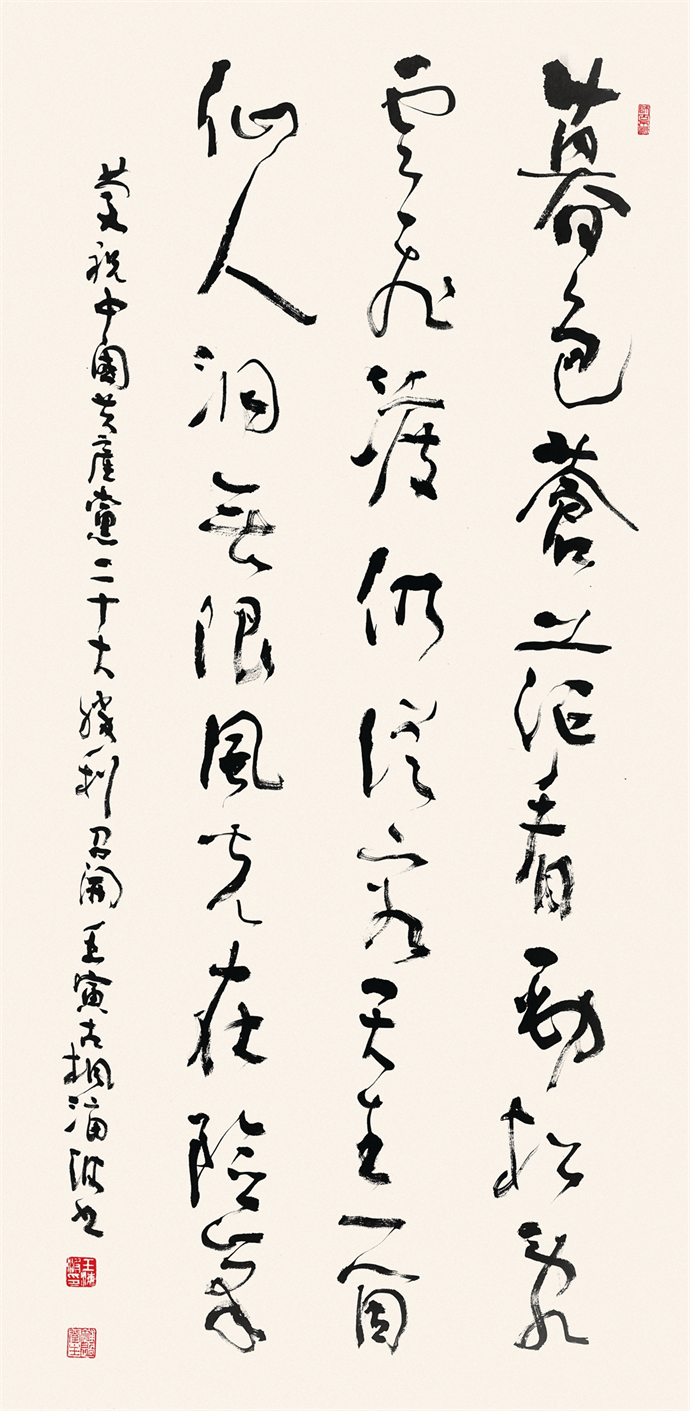 暮色蒼茫看勁松亂
雲飛渡仍從容天生一個
仙人洞無限風光在險峯
慶祝中國共產黨二十大勝利召開壬寅古桐書